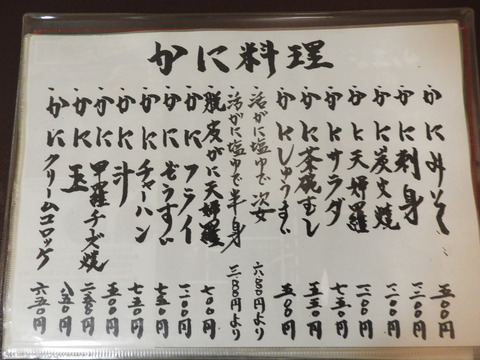 かに料理
・かにみそ 五〇〇円
・かに刺身 一二〇〇円
・かに炭火焼 一二〇〇円
・かに天婦羅 一二〇〇円
・かにサラダ 七五〇円
・かに茶碗むし 五五〇円
・かにしゅうまい 五〇〇円
・活がに塩ゆで 姿 六八〇〇円より
・活がに塩ゆで 半身 三八〇〇円より
・脱皮がに天婦羅 七〇〇円
・かにフライ 一二〇〇円
・かにぞうすい 七五〇円
・かにチャーハン 七五〇円
・かに汁 五〇〇円
・かに甲羅チーズ焼
・かに玉 八五〇円
・かにクリームコロッケ 六五〇円